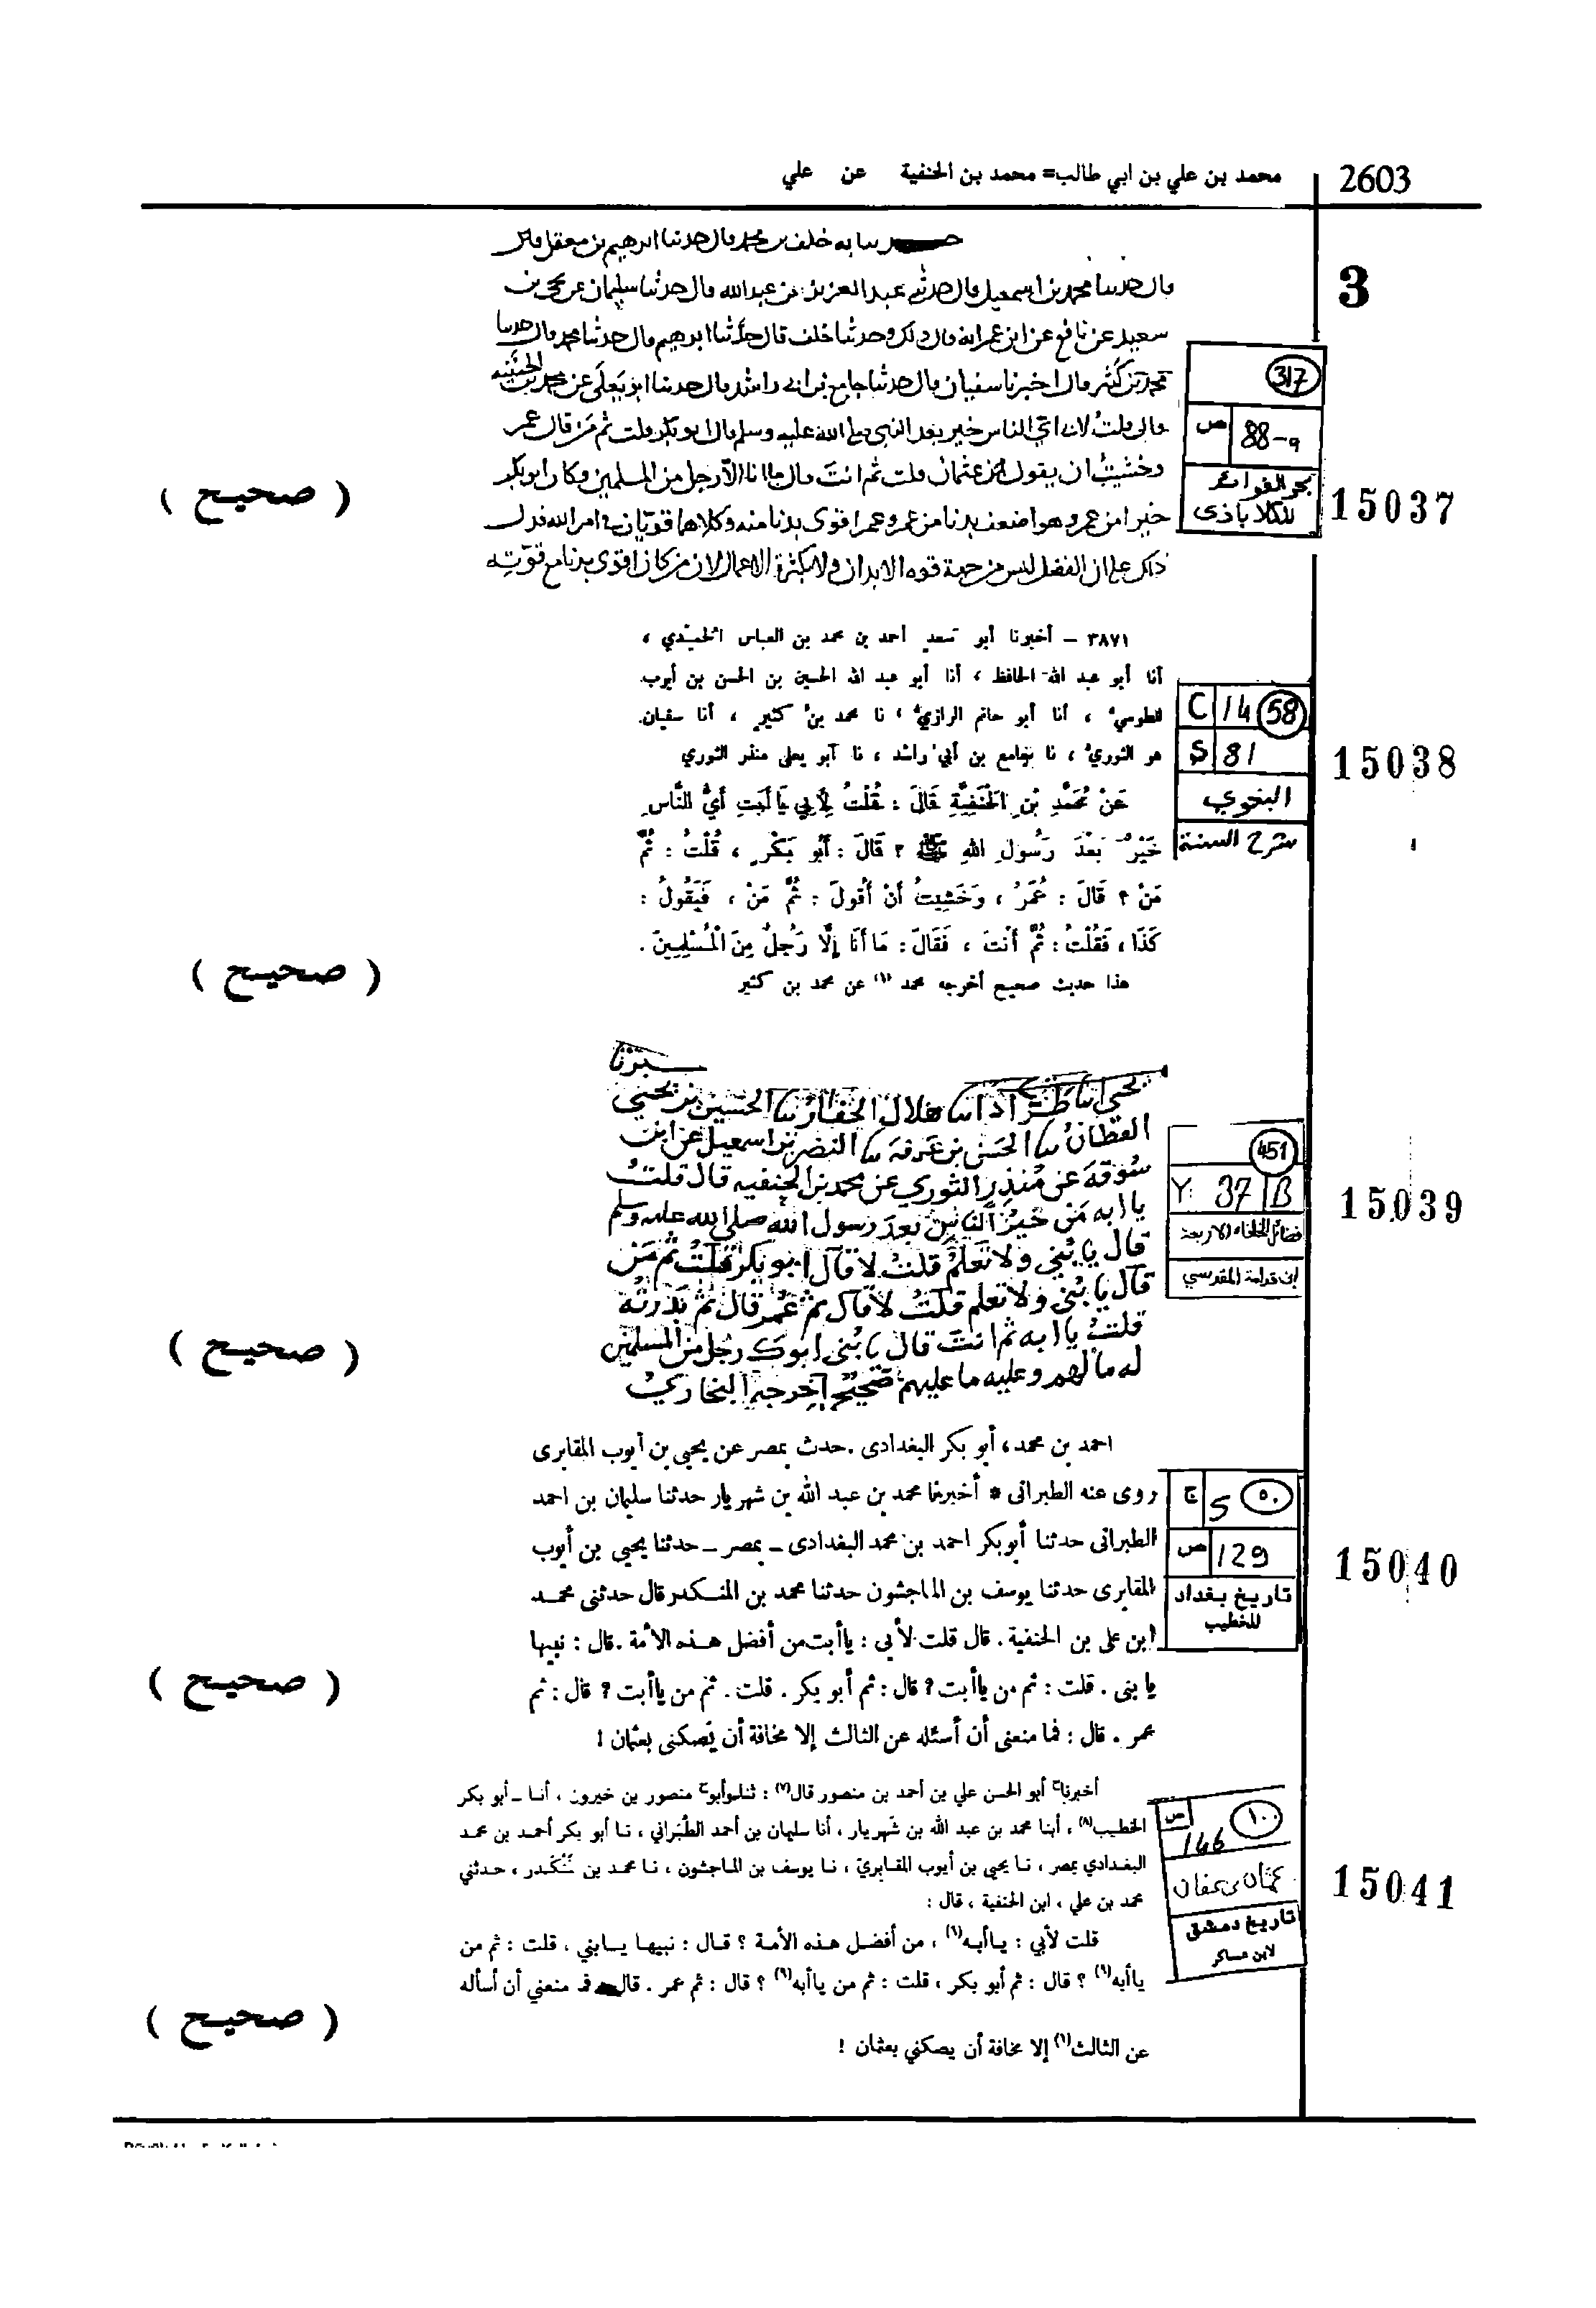 2603
محمد بن علي بن ابي طالب= محمد بن الحنفية عن علي
3
به خلف بن محمد قال حدثنا ابرهيم بن معقل
قال حدثنا محمد بن اسمعيل قال حدثنا عبد العزيز بن عبدالله قال حدثنا سليمان عن يحيى بن
سعيد عن نافع عن ابن عمر انه قال ذلك وحدثنا خلف قال حدثنا ابرهيم قال حدثنا محمد قال حدثنا
محمد بن كثير قال اخبرنا سفيان قال حدثنا جامع بن ابي راشد قال حدثنا ابو يعلى عن محمد بن الحنفية
قال قلت لابي اي الناس خير بعد النبي صلى الله عليه وسلم قال ابو بكر قلت ثم من قال عمر
وخشيت ان يقول عثمان قلت ثم انت قال ما انا الا رجل من المسلمين وكان ابو بكر
خيرا من عمر وهو اضعف بدنا من عمر وعمر اقوى بدنا منه وكلاهما قويان في امر الله فدل
ذلك على ان الفضل ليس من جهة قوه الابدان ولا بكثرة الاعمال لان من كان اقوى بدنا مع قوته
317
ص 88-9
بحر الفوائد
للكلاباذى
15037
( صحيح )
٣٨٧١ – أخبرنا أبو سعد أحمد بن محمد بن العباس الحميدي ،
أنا أبو عبد الله الحافظ ، أنا أبو عبد الله الحسين بن الحسن بن أيوب
الطوسي ، أنا أبو حاتم الرازي ، نا محمد بن كثير ، أنا سفيان
هو الثوري ، نا جامع بن أبي راشد ، نا أبو يعلى منذر الثوري
عَنْ مُحَمَّدِ بْنِ الْحَنَفِيَّةِ قَالَ : قُلْتُ لِأَبِي يَا أَبَتِ أَيُّ النَّاسِ
خَيْرٌ بَعْدَ رَسُولِ اللهِ ﷺ ؟ قَالَ : أَبُو بَكْرٍ ، قُلْتُ : ثُمَّ
مَنْ ؟ قَالَ : عُمَرُ ، وَخَشِيتُ أَنْ أَقُولَ : ثُمَّ مَنْ ، فَيَقُولُ :
كَذَا ، فَقُلْتُ : ثُمَّ أَنْتَ ، فَقَالَ : مَا أَنَا إِلَّا رَجُلٌ مِنَ الْمُسْلِمِينَ .
هذا حديث صحيح أخرجه محمد (١) عن محمد بن كثير
C 14 58
S 81
البغوي
شرح السنة
15038
( صحيح )
يحيى انا طراد انا هلال الحفار نا الحسين بن يحيى
القطان نا الحسن بن عرفه نا النضر بن اسمعيل عن ابن
سوقة عن منذر الثوري عن محمد بن الحنفيه قال قلت
يا ابه من خير الناس بعد رسول الله صلى الله عليه وسلم
قال يا بني ولا تعلم قلت لا قال ابو بكر قلت ثم من
قال يا بني ولا تعلم قلت لا قال ثم عمر قال ثم بدرته
قلت يا ابه ثم انت قال يا بني ابوك رجل من المسلمين
له ما لهم وعليه ما عليهم صحيح اخرجه البخاري
451
Y: 37 B
فضائل الخلفاء الاربعة
ابن قدامة المقدسي
15039
( صحيح )
احمد بن محمد، أبو بكر البغدادى . حدث بمصر عن يحيى بن أيوب المقابرى
روى عنه الطبرانى * أخبرنا محمد بن عبد الله بن شهريار حدثنا سليمان بن احمد
الطبرانى حدثنا أبو بكر احمد بن محمد البغدادى – بمصر – حدثنا يحيى بن أيوب
المقابرى حدثنا يوسف بن الماجشون حدثنا محمد بن المنكدر قال حدثنى محمد
ابن على بن الحنفية . قال قلت لأبى : يا أبت من أفضل هذه الأمة . قال : نبيها
يا بنى . قلت : ثم من يا أبت ? قال : ثم أبو بكر . قلت . ثم من يا أبت ? قال : ثم
عمر . قال : فما منعنى أن أسئله عن الثالث إلا مخافة أن يصكنى بعثمان !
ج 5 ٥٠
ص 129
تاريخ بغداد
للخطيب
15040
( صحيح )
أخبرنا أبو الحسن علي بن أحمد بن منصور قال(٧) : ثنا وأبو منصور بن خيرون ، أنا – أبو بكر
الخطيب(٨) ، أبنا محمد بن عبد الله بن شهريار ، أنا سليمان بن أحمد الطبراني ، نا أبو بكر أحمد بن محمد
البغدادي بمصر ، نا يحيى بن أيوب المقابري ، نا يوسف بن الماجشون ، نا محمد بن منكدر ، حدثني
محمد بن علي ، ابن الحنفية ، قال :
قلت لأبي : يا أبه(٩) ، من أفضل هذه الأمة ؟ قال : نبيها يا بني ، قلت : ثم من
يا أبه(٩) ؟ قال : ثم أبو بكر ، قلت : ثم من يا أبه(٩) ؟ قال : ثم عمر . قال منعني أن أسأله
عن الثالث(١) إلا مخافة أن يصكني بعثمان !
ص ١٠٠
146
عثمان بن عفان
تاريخ دمشق
لابن عساكر
15041
( صحيح )